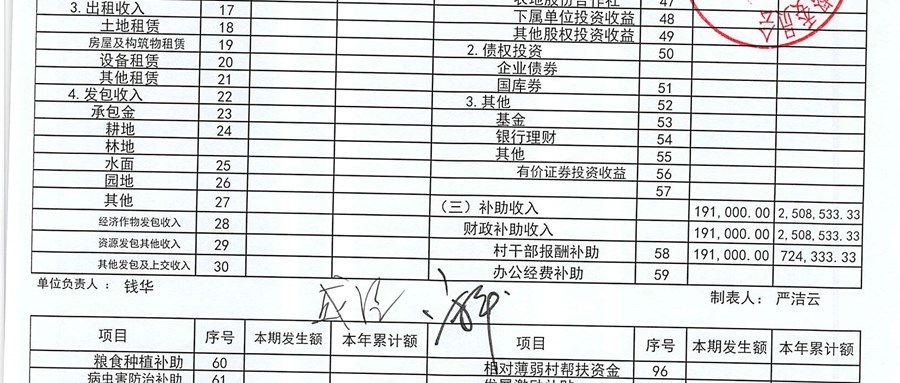 3. 出租收入 17
土地租赁 18
房屋及构筑物租赁 19
设备租赁 20
其他租赁 21
4. 发包收入 22
承包金 23
耕地 24
林地
水面 25
园地 26
其他 27
经济作物发包收入 28
资源发包其他收入 29
其他发包及上交收入 30
47
下属单位投资收益 48
其他股权投资收益 49
2. 债权投资 50
企业债券
国库券 51
3. 其他 52
基金 53
银行理财 54
其他 55
有价证券投资收益 56
57
（三）补助收入 191,000.00 2,508,533.33
财政补助收入 191,000.00 2,508,533.33
村干部报酬补助 58 191,000.00 724,333.33
办公经费补助 59
单位负责人：钱华
制表人：严洁云
项目 序号 本期发生额 本年累计额 项目 序号 本期发生额 本年累计额
粮食种植补助 60 相对薄弱村帮扶资金 96
病虫害防治补助 61